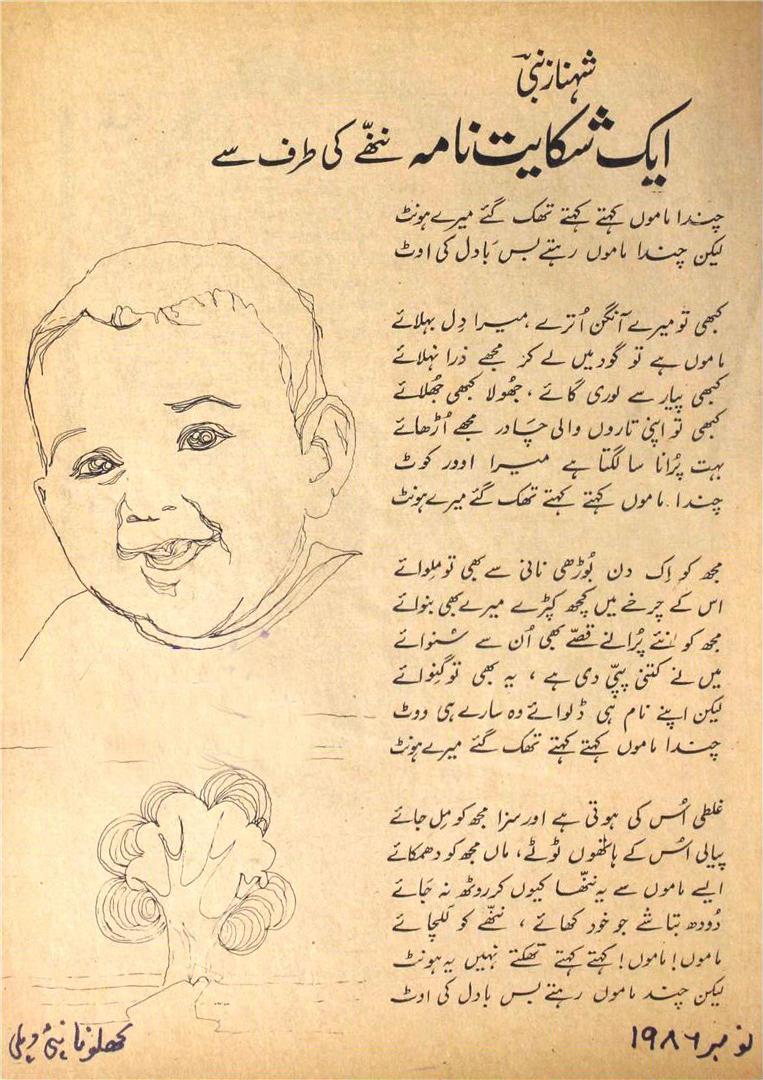 شہناز نبی
ایک شکایت نامہ ننھّے کی طرف سے
چندا ماموں کہتے کہتے تھک گئے میرے ہونٹ
لیکن چندا ماموں رہتے بس بادل کی اوٹ
کبھی تو میرے آنگن اُترے ، میرا دِل بہلائے
ماموں ہے تو گود میں لے کر مجھے ذرا نہلائے
کبھی پیار سے لوری گائے ، جھُولا کبھی جھُلائے
کبھی تو اپنی تاروں والی چادر مجھے اُڑھائے
بہت پُرانا سا لگتا ہے میرا اوور کوٹ
چندا ماموں کہتے کہتے تھک گئے میرے ہونٹ
مجھ کو اِک دن بُوڑھی نانی سے بھی تو مِلوائے
اس کے چرخے میں کچھ کپڑے میرے بھی بنوائے
مجھ کو نئے پُرانے قصّے بھی اُن سے سُنوائے
میں نے کتنی پپّی دی ہے ، یہ بھی تو گِنوائے
لیکن اپنے نام ہی ڈلوائے وہ سارے ہی ووٹ
چندا ماموں کہتے کہتے تھک گئے میرے ہونٹ
غلطی اُس کی ہوتی ہے اور سزا مجھ کو مِل جائے
پیالی اُس کے ہاتھوں ٹوٹے ، ماں مجھ کو دھمکائے
ایسے ماموں سے یہ ننھّا کیوں کر روٹھ نہ جائے
دُودھ بتاشے جو خود کھائے ، ننھّے کو للچائے
ماموں! ماموں! کہتے کہتے تھکتے نہیں یہ ہونٹ
لیکن چند ماموں رہتے بس بادل کی اوٹ
نومبر ۱۹۸۶
کھلونا نئی دہلی